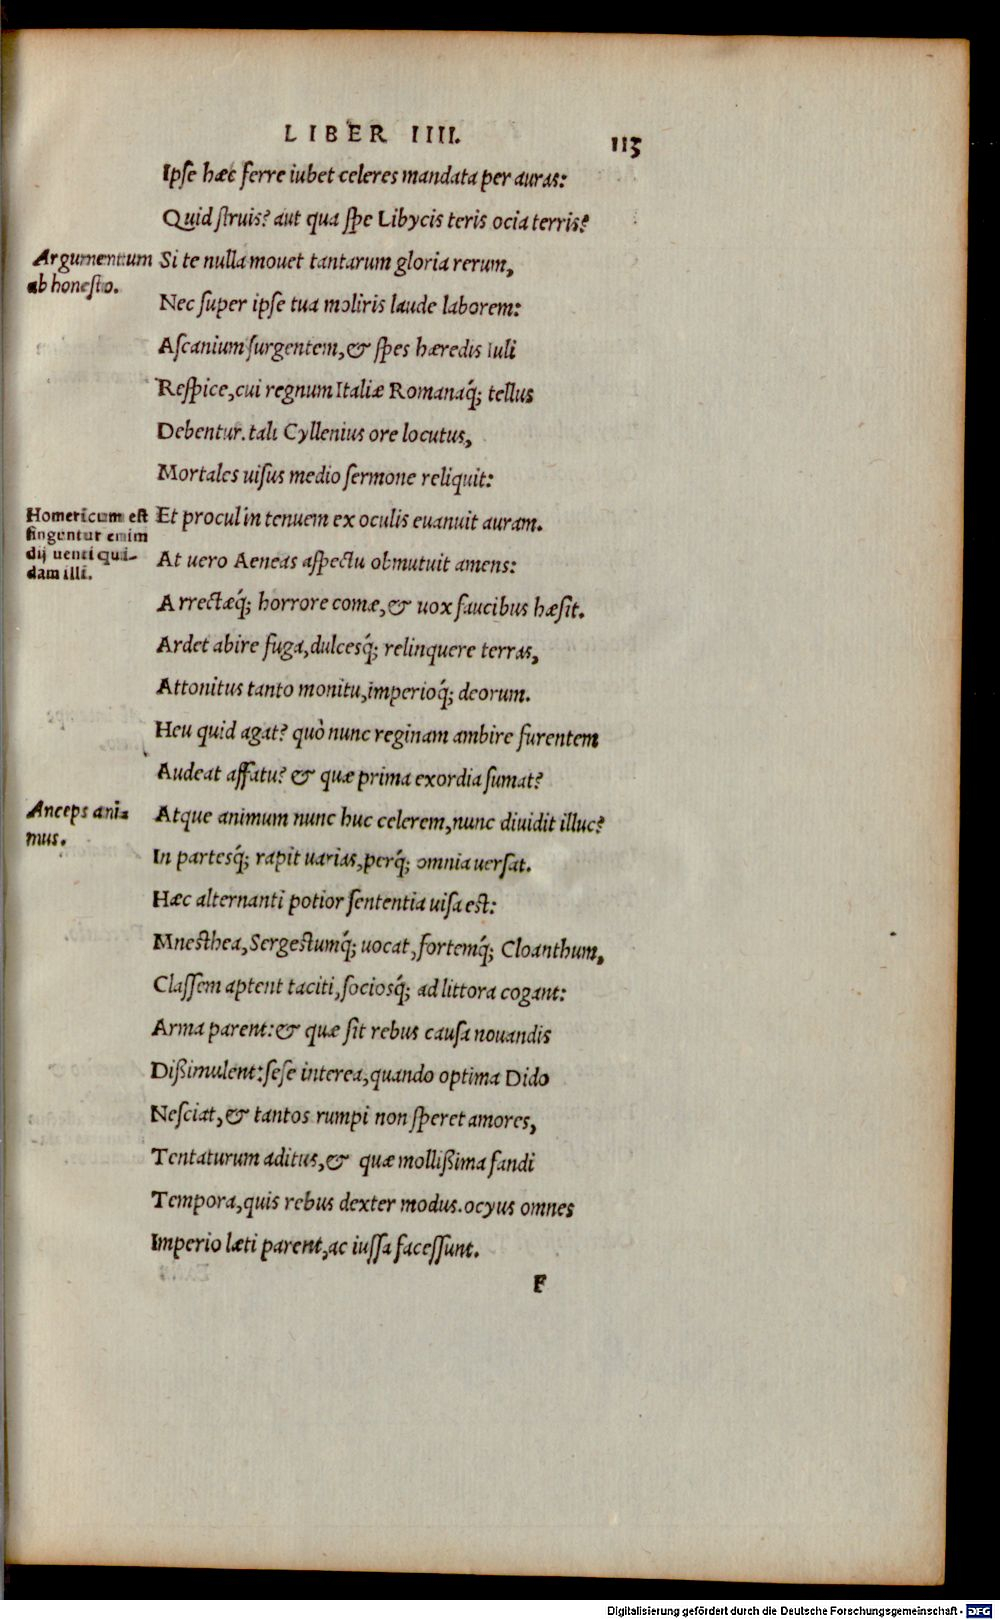 LIBER IIII.
113
Ipſe hæc ferre iubet celeres mandata per auras:
Quid ſtruis? aut qua ſpe Libycis teris ocia terris?
Argumentum
ab honeſto.
Si te nulla mouet tantarum gloria rerum,
Nec ſuper ipſe tua moliris laude laborem:
Aſcanium ſurgentem, & ſpes hæredis Iuli
Reſpice, cui regnum Italiæ Romanaq́; tellus
Debentur. tali Cyllenius ore locutus,
Mortales uiſus medio ſermone reliquit:
Homericum eſt
finguntur enim
dij uenti qui-
dam illi.
Et procul in tenuem ex oculis euanuit auram.
At uero Aeneas aſpectu obmutuit amens:
Arrectæq́; horrore comæ, & uox faucibus hæſit.
Ardet abire fuga, dulcesq́; relinquere terras,
Attonitus tanto monitu, imperioq́; deorum.
Heu quid agat? quò nunc reginam ambire furentem
Audeat affatu? & quæ prima exordia ſumat?
Anceps ani-
mus.
Atque animum nunc huc celerem, nunc diuidit illuc?
In partesq́; rapit uarias, perq́; omnia uerſat.
Hæc alternanti potior ſententia uiſa eſt:
Mneſthea, Sergeſtumq́; uocat, fortemq́; Cloanthum,
Claſſem aptent taciti, ſociosq́; ad littora cogant:
Arma parent: & quæ ſit rebus cauſa nouandis
Dißimulent: ſeſe interea, quando optima Dido
Neſciat, & tantos rumpi non ſperet amores,
Tentaturum aditus, & quæ mollißima fandi
Tempora, quis rebus dexter modus. ocyus omnes
Imperio læti parent, ac iuſſa faceſſunt.
F
Digitalisierung gefördert durch die Deutsche Forschungsgemeinschaft - DFG